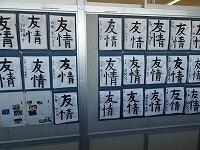 友情 友情 友情 友情 友情 友情 友情 友情
友情 友情 友情 友情 友情 友情 友情 友情
友情 友情 友情 友情 友情 友情